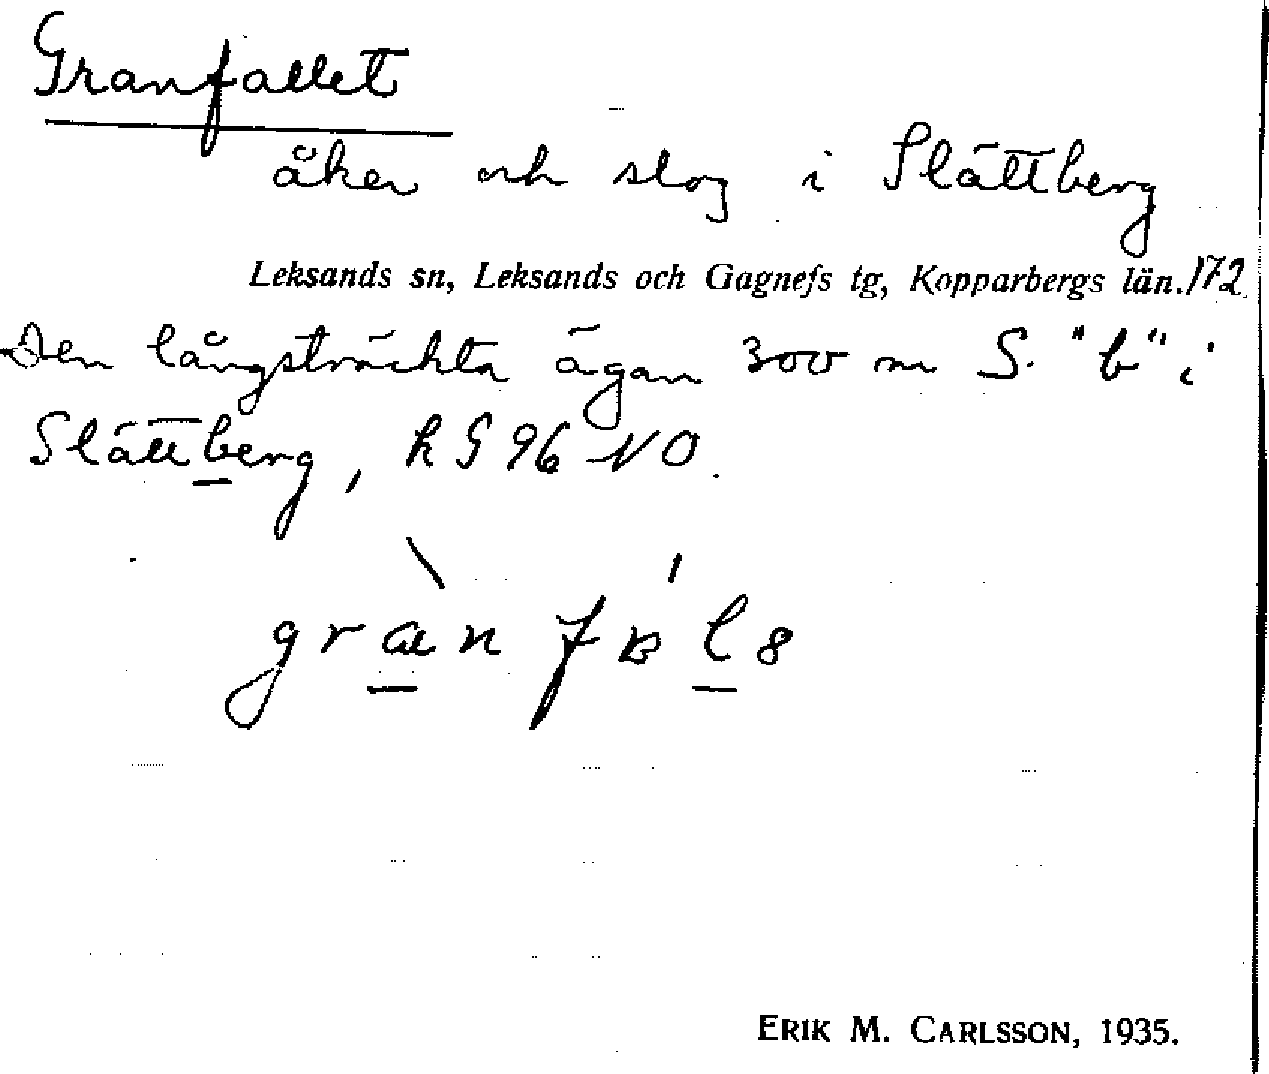 Granfallet
åker och slog i Slättberg
Leksands sn, Leksands och Gagnefs tg, Kopparbergs län. 172
Den långsträckta ägan 300 m S. "b" i
Slättberg, k S 96 NO.
ERIK M. CARLSSON, 1935.